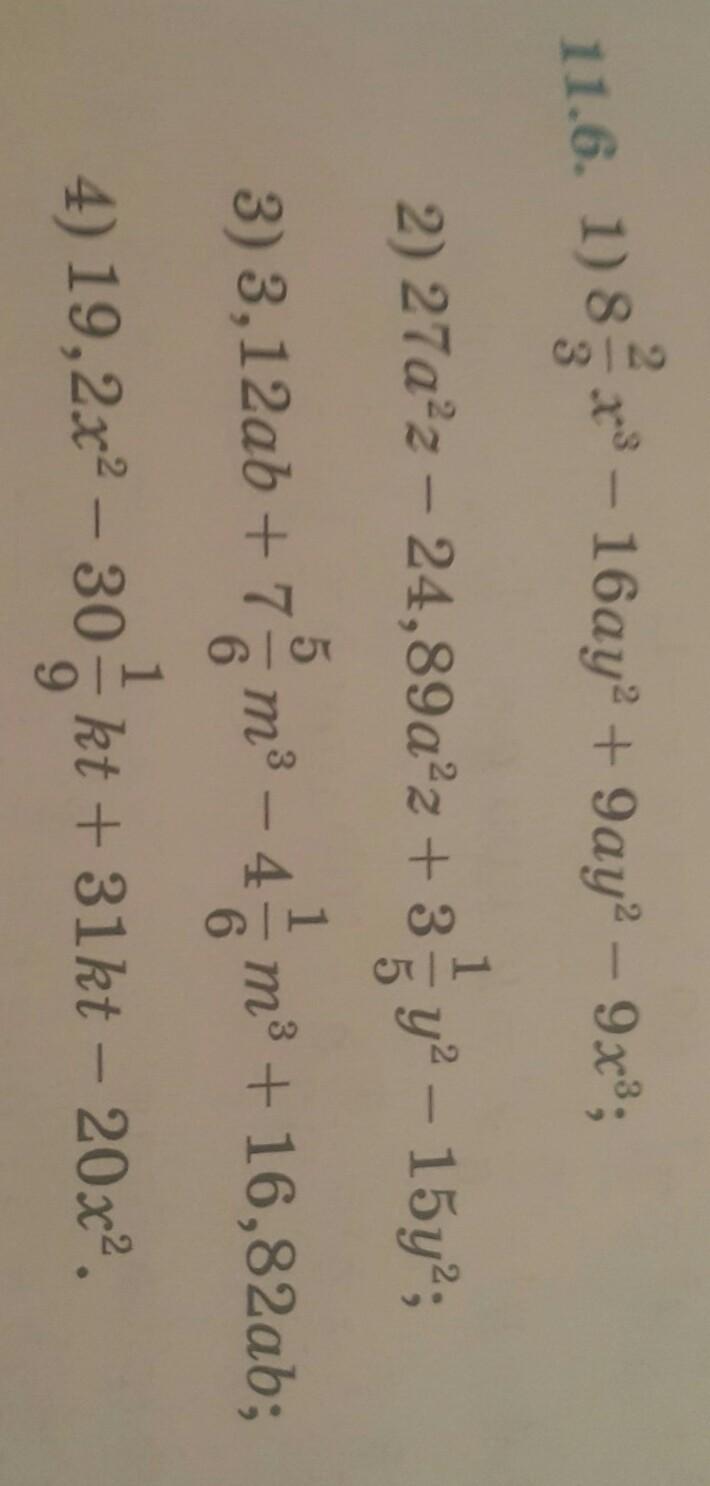 11.6. 1) 8 2/3 x³ − 16ay² + 9ay² − 9x³;
2) 27a²z − 24,89a²z + 3 1/5 y² − 15y²;
3) 3,12ab + 7 5/6 m³ − 4 1/6 m³ + 16,82ab;
4) 19,2x² − 30 1/9 kt + 31kt − 20x².